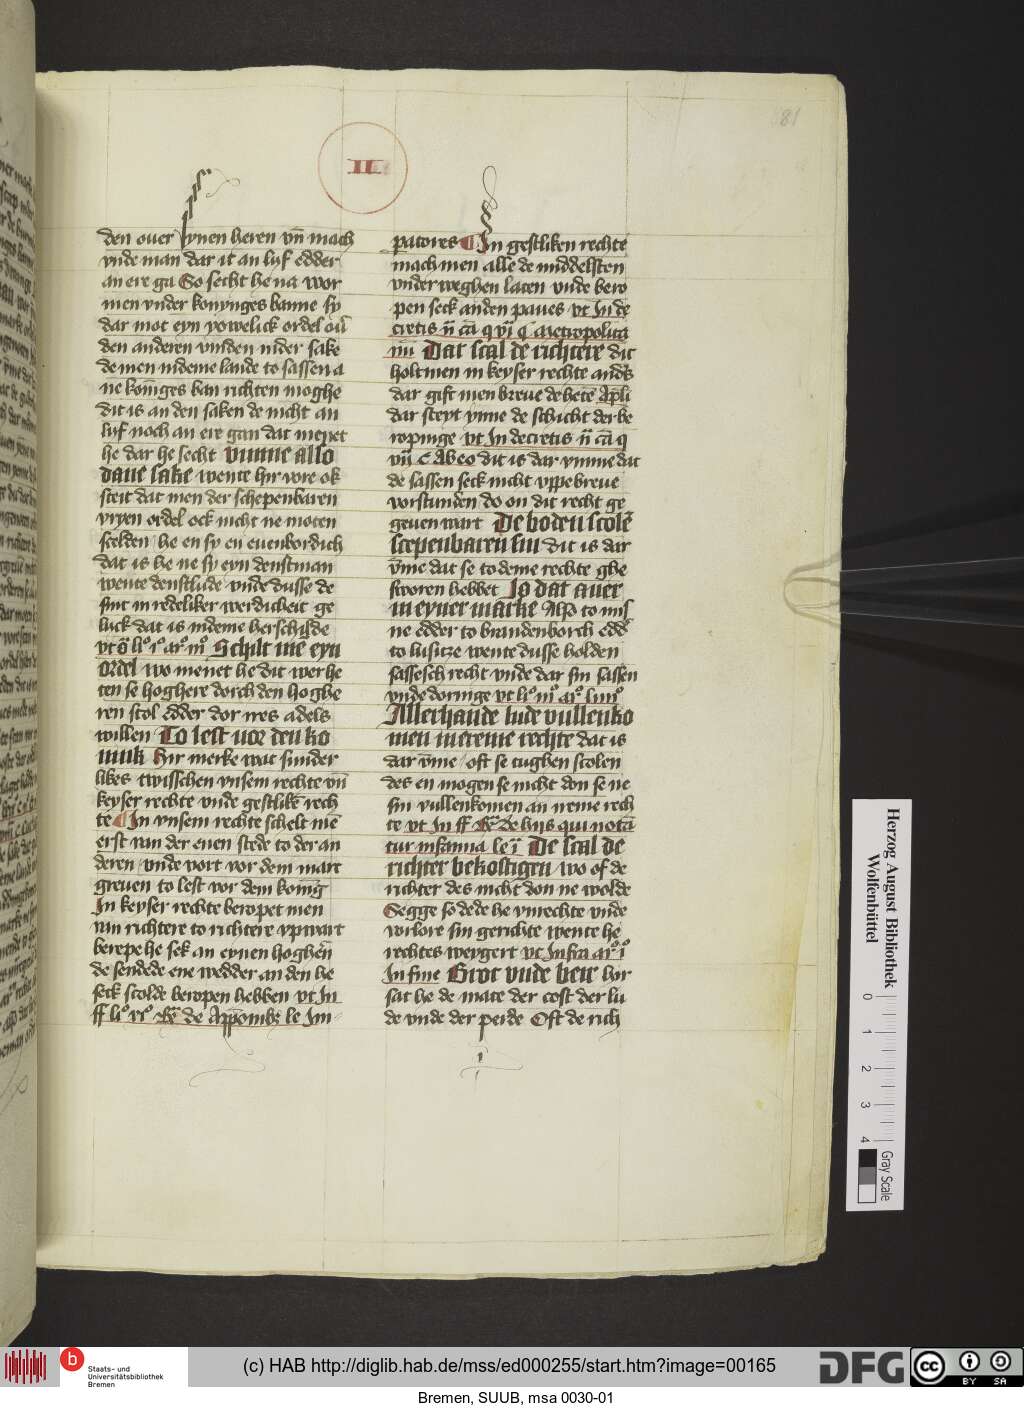 81
II
den ouer synen heren vn̄ mach
vnde man dar it an lyf edder
an ere ga So secht he na wor
men vnder konynges banne sy
dar mot eyn yowelick ordel
den anderen vinden nider sake
de men indeme lande to sassen a
ne koniges ban richten moghe
dit is an den saken de nicht an
lyf noch an ere gan dat menet
he dar he secht vmme also
dane sake wente hir vore ok
steit dat men der schepenbaren
vryen ordel ock nicht ne moten
schelden he en sy en euenbordich
dat is he ne sy eyn denstman
wente denstlude vnde dusse de
sint in redeliker werdicheit ge
luck dat is indeme herschilde
Schilt me eyn
ordel wo menet he dit wer he
ten se hoghere dorch den hoghe
ren stol edder dor ires adels
willen To lest vor den ko
nink Hir merke wat sunder
likes twisschen vnsem rechte vn̄
keyser rechte vnde gestlikē rech
te In vnsem rechte schelt mē
erst van der enen stede to der an
deren vnde vort vor dem mart
greuen to lest vor dem konīg
In keyser rechte beropet men
van richtere to richtere vpwart
berepe he sek an eynen hoghēn
de sendede ene wedder an den he
seck scolde beropen hebben vt In
de
patores In gestliken rechte
mach men alle de middelsten
vnderweghen laten vnde bero
pen seck an den paues vt In de
cretis
Dat scal de richtere dit
holt men in keyser rechte
dar gift men breue de hetē Apli
dar steyt ynne de schicht der be
ropinge vt In decretis
dit is dar vmme dat
de sassen seck nicht vppe breue
vorstunden do on dit recht ge
geuen wart De boden scolē
scepenbaren sin dit is dar
v̄me dat se to deme rechte ghe
sworen hebbet Is dat auer
in eyner marke Alse to
ne edder to brandenborch
to lusitze wente dusse holden
sassesch recht vnde dar sin sassen
vnde doringe
Allerhande lude vullenko
men in erme rechte dat is
dar v̄me oft se tughen scolen
des en mogen se nicht don se ne
sin vullenkomen an ireme rech
te vt In ff de hijs qui notā
tur infamia De scal de
richter bekostigen wo of de
richter des nicht don ne wolde
Segge so dede he vnrechte vnde
vorlore sin gerichte wente he
rechtes weygert vt Infra
In fine Brot vnde beir hir
sat he de mate der cost der lu
de vnde der perde Oft de rich
Herzog August Bibliothek
Wolfenbüttel
0 1 2 3 4
Gray Scale
b Staats- und
Universitätsbibliothek
Bremen
(c) HAB http://diglib.hab.de/mss/ed000255/start.htm?image=00165
DFG
cc BY SA
Bremen, SUUB, msa 0030-01